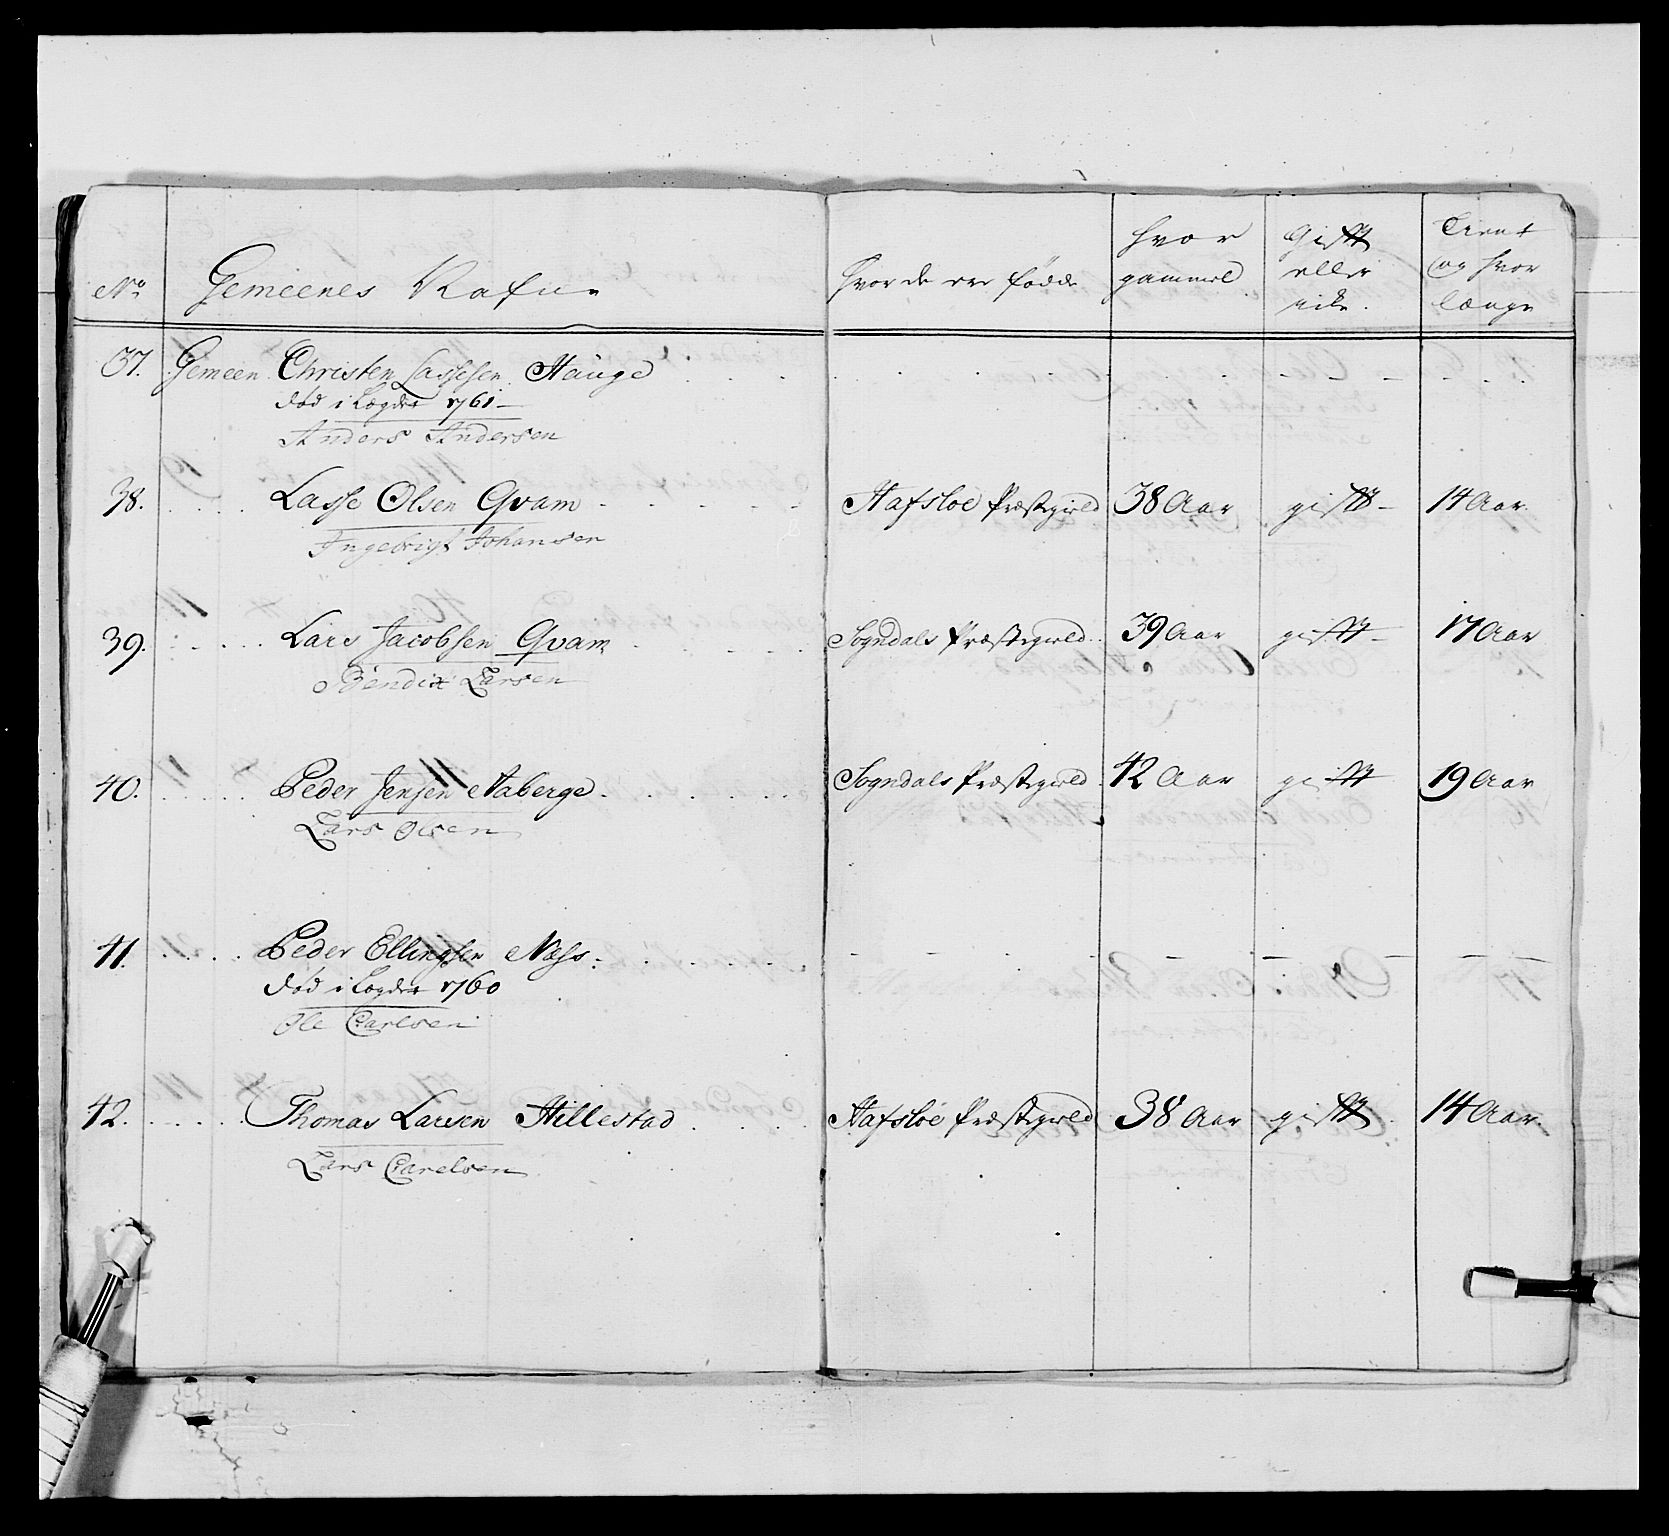 No Gemeenes Nafne hvor de ere fødde hvor gammel Gift eller eike. tient og hvor længe
37. Gemeen Christen Lassesen Hauge
død i Lægdet 1761
Anders Andersen
38. Lasse Olsen Qvam Hafsloe Præstegield 38 Aar gift 14 Aar
Ingebrigt Johansen
39. Lars Jacobsen Qvam Sogndals Præstegield 39 Aar gift 17 Aar
Bendix Larsen
40. Peder Jensen Aaberge Sogndals Præstegield 42 Aar gift 19 Aar
Lars Olsen
41. Peder Ellingsen Næss
død i Lægdet 1760
Ole Carlsen
42. Thomas Larsen Hillestad Hafsloe Præstegield 38 Aar gift 14 Aar
Lars Carelsen